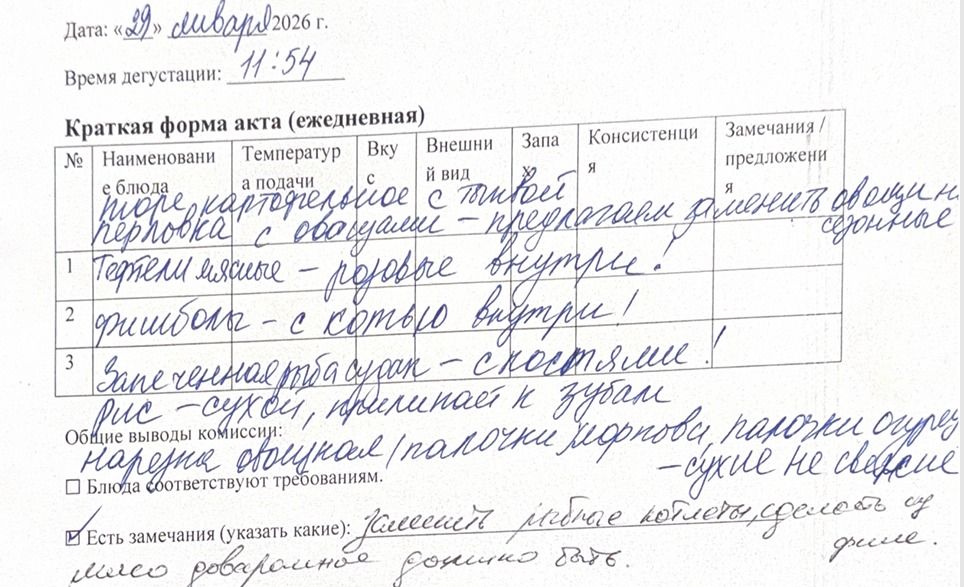 Дата: «29» января 2026 г.
Время дегустации: 11:54
Краткая форма акта (ежедневная)
№ Наименовани е блюда Температур а подачи Вку с Внешни й вид Запа х Консистенци я Замечания / предложени я
пюре картофельное с тыквой
перловка с овощами – предлагаем заменить овощи на
сезонные
1 Тефтели мясные – розовые внутри!
2 фишболы – с костью внутри!
3 Запеченная рыба судак – с костями!
Рис – сухой, прилипает к зубам
Общие выводы комиссии:
нарезка овощная (палочки моркови, палочки огурец
– сухие не свежие
☐ Блюда соответствуют требованиям.
☑ Есть замечания (указать какие): Заменить рыбные котлеты, сделать из
филе.
мясо доваренное должно быть.